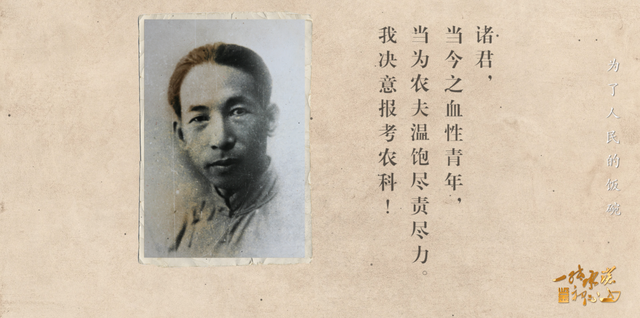 为了人民的饭碗
诸君，
当今之血性青年，
当为农夫温饱尽责尽力。
我决意报考农科！